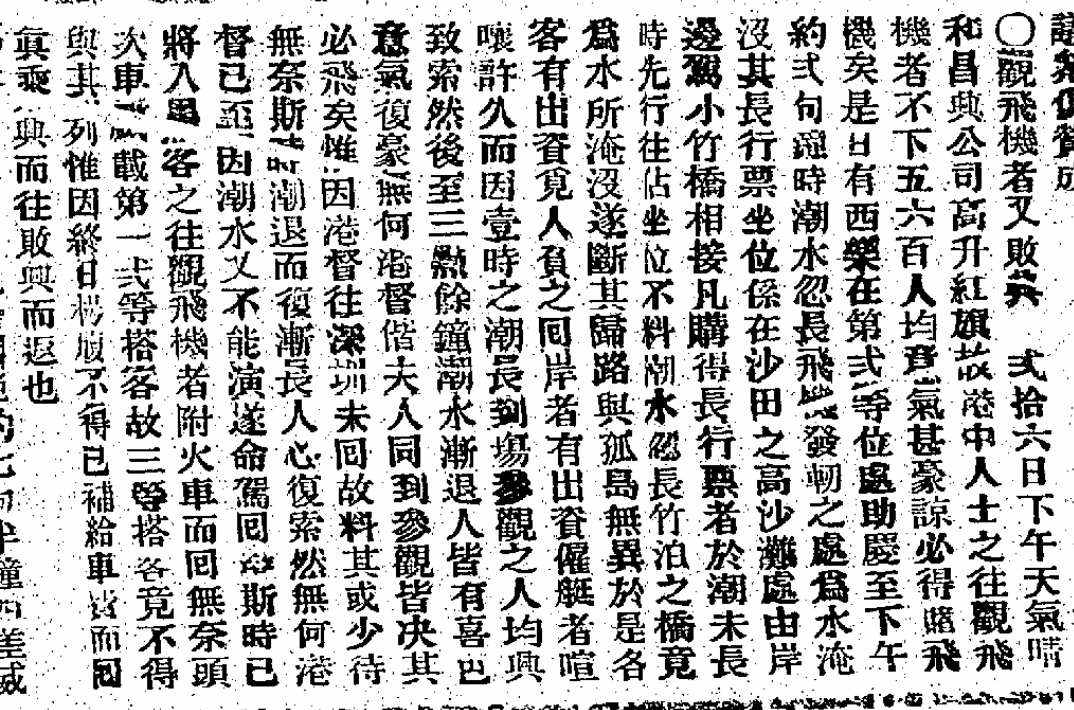 議。贊成
〇觀飛機者又敗興 弍拾六日下午天氣晴
和昌興公司高升紅旗故港中人士之往觀飛
機者不下五六百人均意氣甚豪諒必得睹飛
機矣是日有西樂在第弍等位處助慶至下午
約弍句鐘時潮水忽長飛機發軔之處爲水淹
沒其長行票坐位係在沙田之高沙灘處由岸
邊駕小竹橋相接凡購得長行票者於潮未長
時先行往佔坐位不料潮水忽長竹泊之橋竟
爲水所淹沒遂斷其歸路與孤島無異於是各
客有出資覓人負之回岸者有出資僱艇者喧
嚷許久而因壹時之潮長到塲參觀之人均興
致索然後至三點餘鐘潮水漸退人皆有喜色
意氣復豪無何港督偕夫人同到參觀皆决其
必飛矣惟因港督往深圳未回故料其或少待
無奈斯時潮退而復漸長人心復索然無何港
督已至因潮水又不能演遂命駕回 斯時已
將入 客之往觀飛機者附火車而回無奈頭
次車 載第一弍等搭客故三等搭客竟不得
與其列惟因終日 不得已補給車 而回
眞乘 興而往敗興而返也